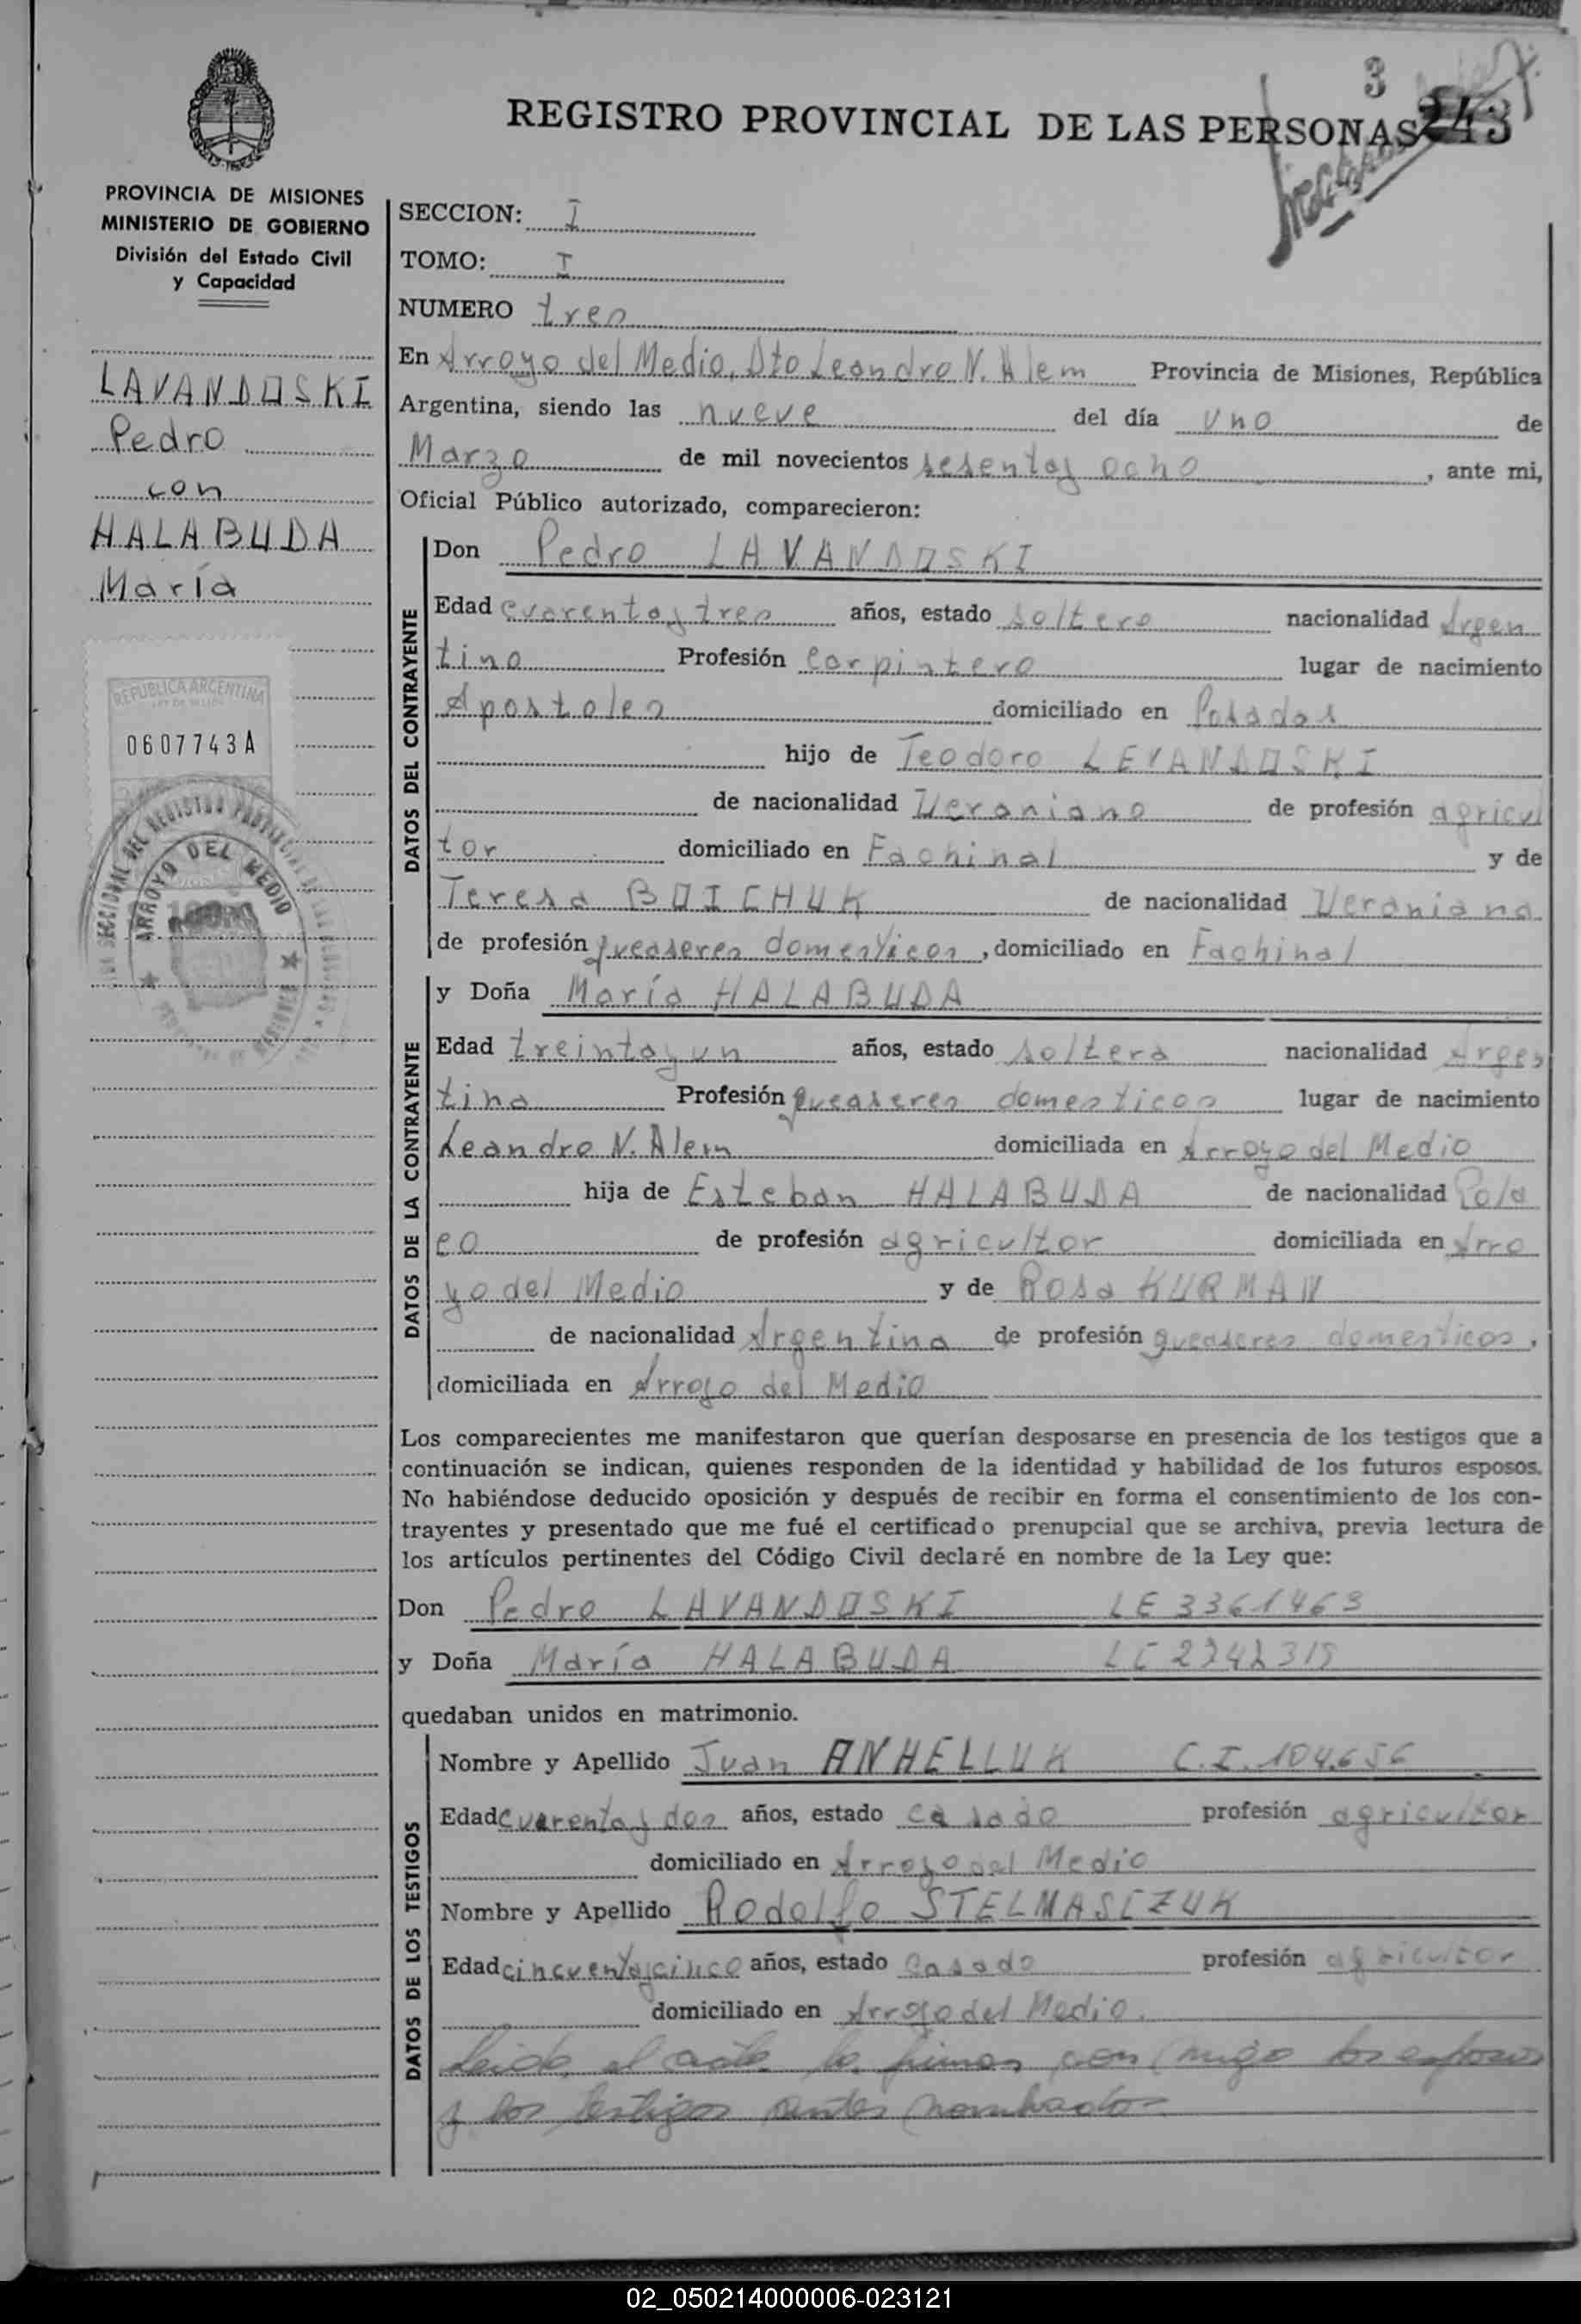 3
REGISTRO PROVINCIAL DE LAS PERSONAS 243
PROVINCIA DE MISIONES
MINISTERIO DE GOBIERNO
División del Estado Civil
y Capacidad
LAVANDOSKI
Pedro
con
HALABUDA
María
REPUBLICA ARGENTINA
0607743A
ARROYO DEL MEDIO
SECCION: I
TOMO: I
NUMERO tres
En Arroyo del Medio, Dto Leandro N. Alem Provincia de Misiones, República
Argentina, siendo las nueve del día uno de
Marzo de mil novecientos sesenta y ocho, ante mi,
Oficial Público autorizado, comparecieron:
DATOS DEL CONTRAYENTE
Don Pedro LAVANDOSKI
Edad cuarenta y tres años, estado soltero nacionalidad Argen
tino Profesión Carpintero lugar de nacimiento
Apostoles domiciliado en Posadas
hijo de Teodoro LEVANDOSKI
de nacionalidad Ucraniano de profesión agricul
tor domiciliado en Fachinal y de
Teresa BOICHUK de nacionalidad Ucraniana
de profesión queaseres domesticos, domiciliado en Fachinal
DATOS DE LA CONTRAYENTE
y Doña María HALABUDA
Edad treinta y un años, estado soltera nacionalidad Argen
tina Profesión queaseres domesticos lugar de nacimiento
Leandro N. Alem domiciliada en Arroyo del Medio
hija de Esteban HALABUDA de nacionalidad Pola
co de profesión agricultor domiciliada en Arro
yo del Medio y de Rosa KURMAN
de nacionalidad Argentina de profesión queaseres domesticos,
domiciliada en Arroyo del Medio
Los comparecientes me manifestaron que querían desposarse en presencia de los testigos que a
continuación se indican, quienes responden de la identidad y habilidad de los futuros esposos.
No habiéndose deducido oposición y después de recibir en forma el consentimiento de los con-
trayentes y presentado que me fué el certificado prenupcial que se archiva, previa lectura de
los artículos pertinentes del Código Civil declaré en nombre de la Ley que:
Don Pedro LAVANDOSKI LE 3361463
y Doña María HALABUDA LC
quedaban unidos en matrimonio.
DATOS DE LOS TESTIGOS
Nombre y Apellido Juan ANHELLUK C.I. 104.656
Edad cuarenta y dos años, estado casado profesión agricultor
domiciliado en Arroyo del Medio
Nombre y Apellido Rodolfo STELMASCZUK
Edad cincuenta y cinco años, estado Casado profesión agricultor
domiciliado en Arroyo del Medio.
Leido el acta la firman con migo los esposos
y los testigos antes nombrados
02_050214000006-023121